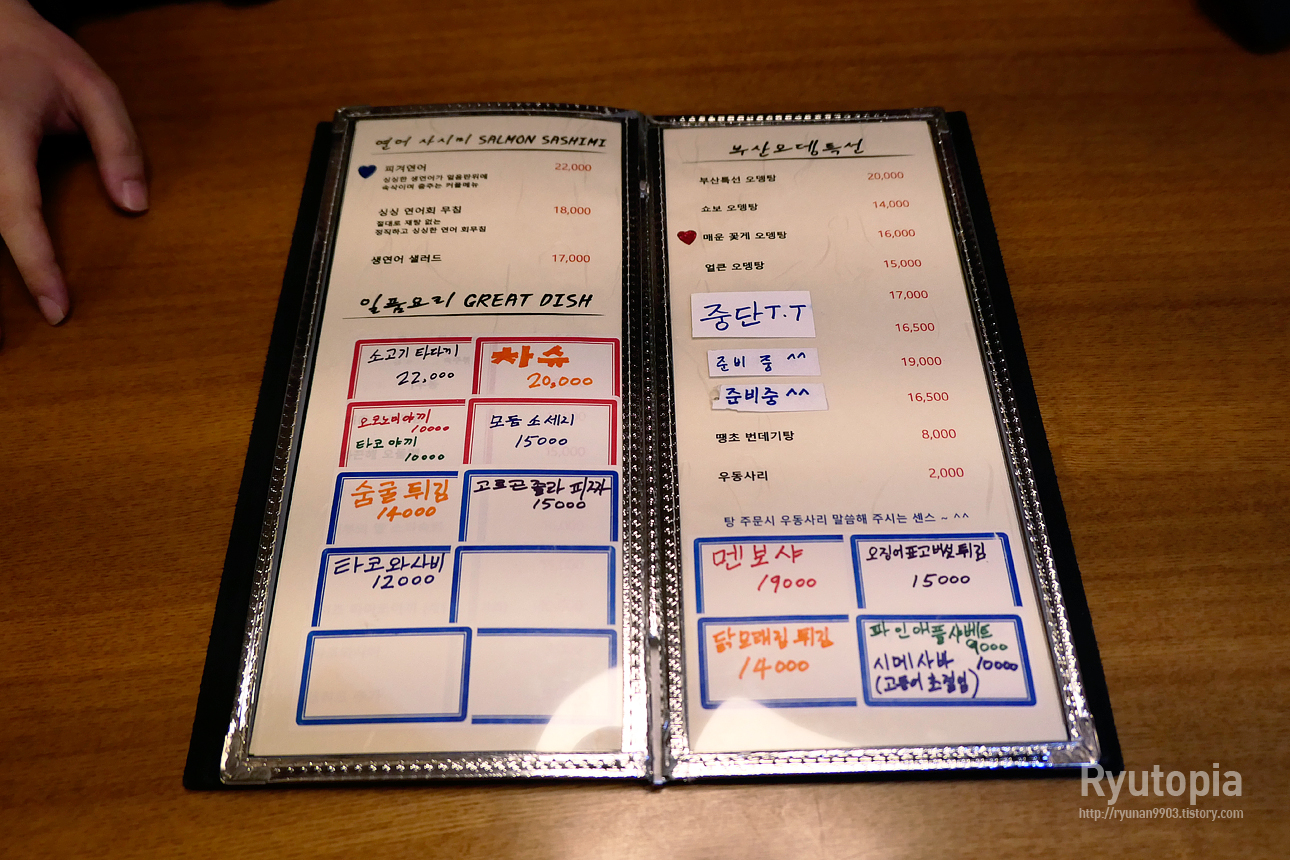 연어 사시미 SALMON SASHIMI
피겨연어 22,000
싱싱한 생연어가 얼음판위에
속삭이며 춤추는 커플메뉴
싱싱 연어회 무침 18,000
절대로 재탕 없는
정직하고 싱싱한 연어 회무침
생연어 샐러드 17,000
일품요리 GREAT DISH
소고기 타다끼
22,000
차슈
20,000
오꼬노미야끼
10000
타코야끼
10000
모듬 소세지
15000
숨굴튀김
14000
고르곤졸라 피자
15000
타코와사비
12000
부산오뎅특선
부산특선 오뎅탕 20,000
쇼보 오뎅탕 14,000
매운 꽃게 오뎅탕 16,000
얼큰 오뎅탕 15,000
중단T.T 17,000
16,500
준비 중 ^^ 19,000
준비중 ^^ 16,500
땡초 번데기탕 8,000
우동사리 2,000
탕 주문시 우동사리 말씀해 주시는 센스 ~ ^^
멘보샤
19000
오징어표고버섯튀김
15000
닭모래집 튀김
14000
파인애플샤베트
9000
시메사바 10000
(고등어 초절임)
Ryutopia
http://ryunan9903.tistory.com